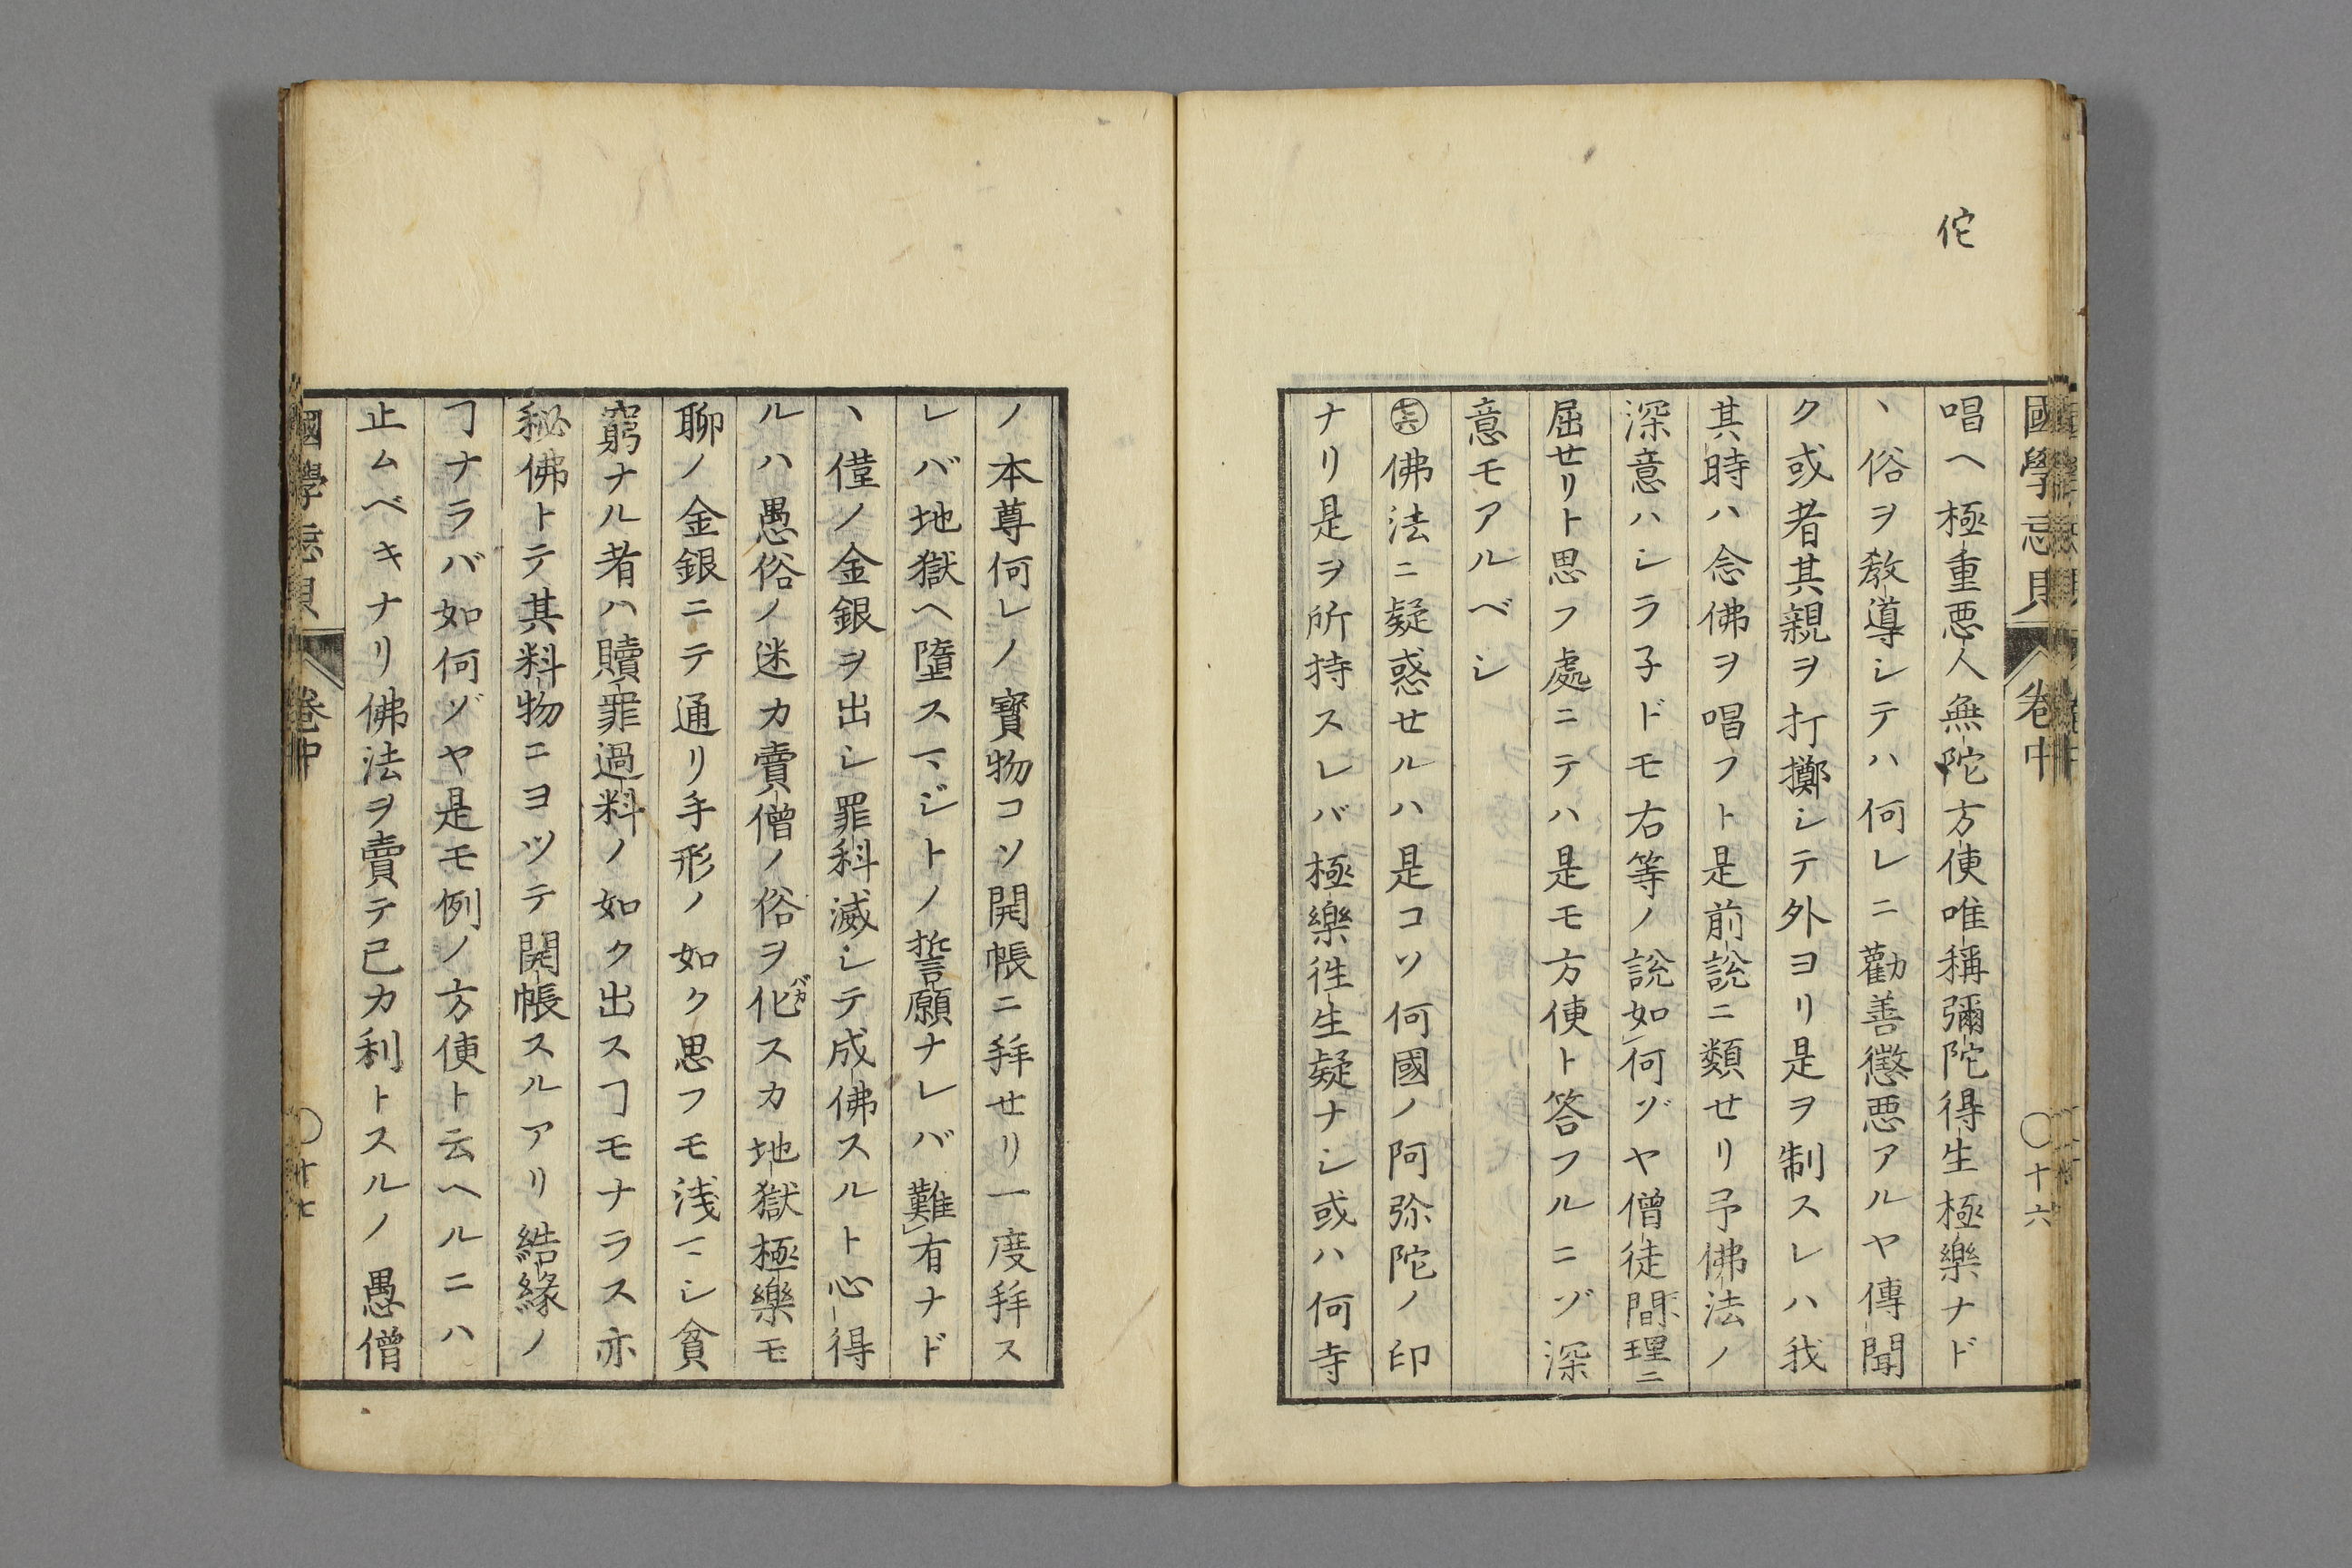 佗
國學忘貝 卷中 〇十六
唱ヘ極重悪人無陀方便唯稱彌陀得生極樂ナド
丶俗ヲ教導シテハ何レニ勸善懲悪アルヤ傳聞
ク或者其親ヲ打擲シテ外ヨリ是ヲ制スレハ我
其時ハ念佛ヲ唱フト是前說ニ類せリ予佛法ノ
深意ハシラ子ドモ右等ノ說如何ゾヤ僧徒間理ニ
屈せリト思フ處ニテハ是モ方便ト答フルニゾ深
意モアルベシ
㊆六佛法ニ疑惑せルハ是コソ何國ノ阿弥陀ノ印
ナリ是ヲ所持スレバ極樂徃生疑ナシ或ハ何寺
ノ本尊何レノ寳物コソ開帳ニ拜せリ一度拜ス
レバ地獄ヘ墮スマジトノ誓願ナレバ難有ナド
丶僅ノ金銀ヲ出シ罪科滅シテ成佛スルト心得
ルハ愚俗ノ迷カ賣僧ノ俗ヲ化バカスカ地獄極樂モ
聊ノ金銀ニテ通リ手形ノ如ク思フモ浅マシ貧
窮ナル者ハ贖罪過料ノ如ク出スヿモナラス亦
秘佛トテ其料物ニヨツテ開帳スルアリ結緣ノ
ヿナラバ如何ゾヤ是モ例ノ方便ト云ヘルニハ
止ムベキナリ佛法ヲ賣テ己カ利トスルノ愚僧
國學忘貝 卷中 〇十七